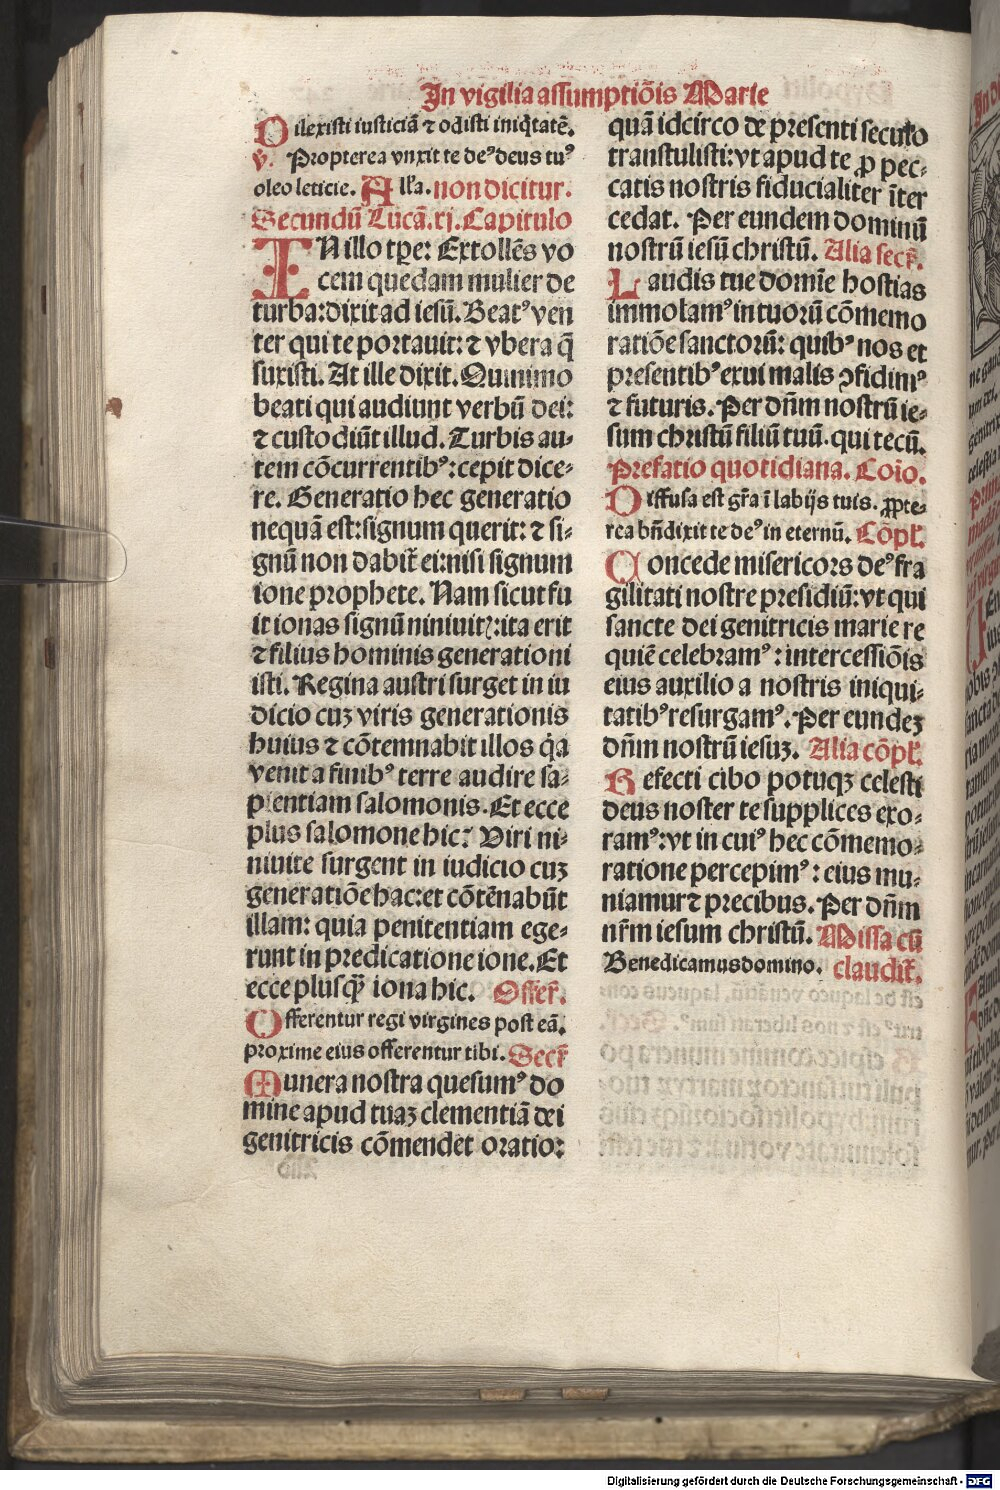 In vigilia assumptiõis Marie
Dilexisti iusticiã ⁊ odisti iniq̃tatẽ.
℣. Propterea vnxit te deꝰ deus tuꝰ
oleo leticie. All'a. non dicitur.
Secundũ Lucã. xj. Capitulo
IN illo tꝑe: Extollẽs vo
cem quedam mulier de
turba: dixit ad iesũ. Beatꝰ ven
ter qui te portauit: ⁊ vbera q̃
suxisti. At ille dixit. Quinimo
beati qui audiunt verbũ dei:
⁊ custodiũt illud. Turbis au⸗
tem cõcurrentibꝰ: cepit dice⸗
re. Generatio hec generatio
nequã est: signum querit: ⁊ si⸗
gnũ non dabit̃ ei: nisi signum
ione prophete. Nam sicut fu
it ionas signũ niniuitꝭ: ita erit
⁊ filius hominis generationi
isti. Regina austri surget in iu
dicio cuꝫ viris generationis
huius ⁊ cõtemnabit illos q̃a
venit a finibꝰ terre audire sa⸗
pientiam salomonis. Et ecce
plus salomone hic: Viri ni⸗
niuite surgent in iudicio cuꝫ
generatiõe hac: et cõtẽnabũt
illam: quia penitentiam ege⸗
runt in predicatione ione. Et
ecce plusq̃ȝ iona hic. Offer̃.
Offerentur regi virgines post eã.
proxime eius offerentur tibi. Secr̃
Munera nostra quesumꝰ do
mine apud tuaꝫ clementiã dei
genitricis cõmendet oratio:
quã idcirco de presenti seculo
transtulisti: vt apud te ꝓ pec⸗
catis nostris fiducialiter ĩter
cedat. Per eundem dominũ
nostrũ iesũ christũ. Alia secr̃.
Laudis tue domĩe hostias
immolamꝰ in tuorũ cõmemo
ratiõe sanctorũ: quibꝰ nos et
presentibꝰ exui malis ꝯfidimꝰ
⁊ futuris. Per dñm nostrũ ie⸗
sum christũ filiũ tuũ. qui tecũ.
Prefatio quotidiana. Cõio.
Diffusa est gr̃a ĩ labijs tuis. ꝓpte⸗
rea bñdixit te deꝰ in eternũ. Cõpl'.
Concede misericors deꝰ fra
gilitati nostre presidiũ: vt qui
sancte dei genitricis marie re
quiẽ celebramꝰ: intercessiõis
eius auxilio a nostris iniqui⸗
tatibꝰ resurgamꝰ. Per eundeꝫ
dñm nostrũ iesuꝫ. Alia cõpl'.
Refecti cibo potuqꝫ celesti
deus noster te supplices exo⸗
ramꝰ: vt in cuiꝰ hec cõmemo⸗
ratione percepimꝰ: eius mu⸗
niamur ⁊ precibus. Per dñm
nr̃m iesum christũ. Missa cũ
Benedicamus domino. claudit̃.
Digitalisierung gefördert durch die Deutsche Forschungsgemeinschaft - DFG